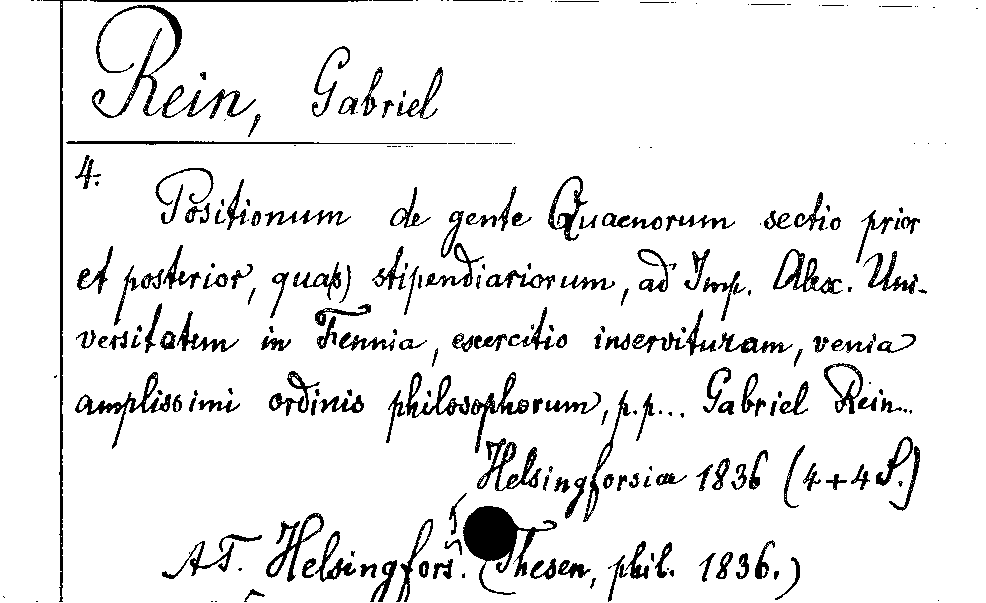 Rein, Gabriel
4.
Positionum de gente Quaenorum sectio prior
et posterior, qua(s) stipendiariorum, ad Imp. Alex. Uni-
versitatem in Fennia, exercitio inservituram, venia
amplissimi ordinis philosophorum, p. p... Gabriel Rein...
Helsingforsiae 1836 (4+4 S.)
AT. Helsingfors. (Thesen, phil. 1836.)